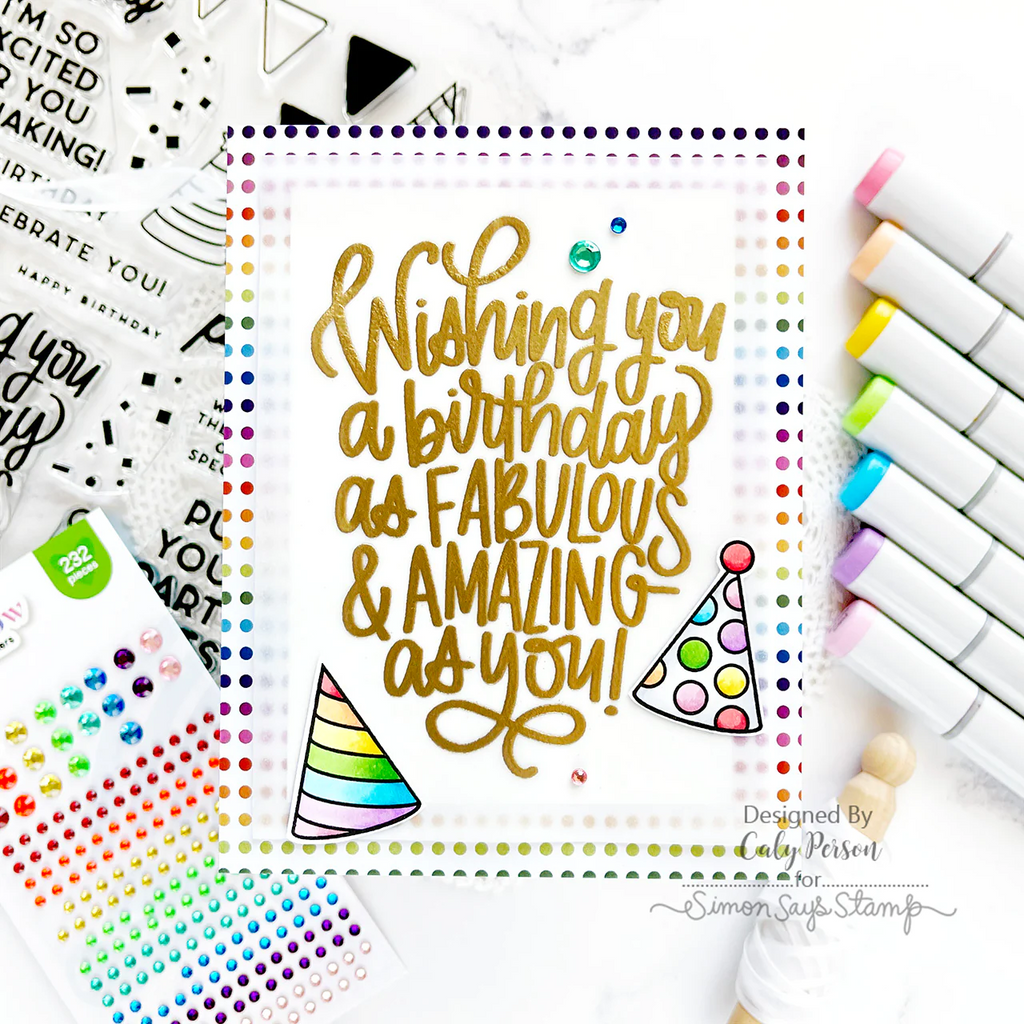 I'M SO
EXCITED
YOU
MAKING!
BIRTHDAY
CELEBRATE YOU!
HAPPY BIRTHDAY
you
232
pieces
Wishing you
a birthday
as FABULOUS
& AMAZING
as you!
Designed By
Caly Person
for
Simon Says Stamp